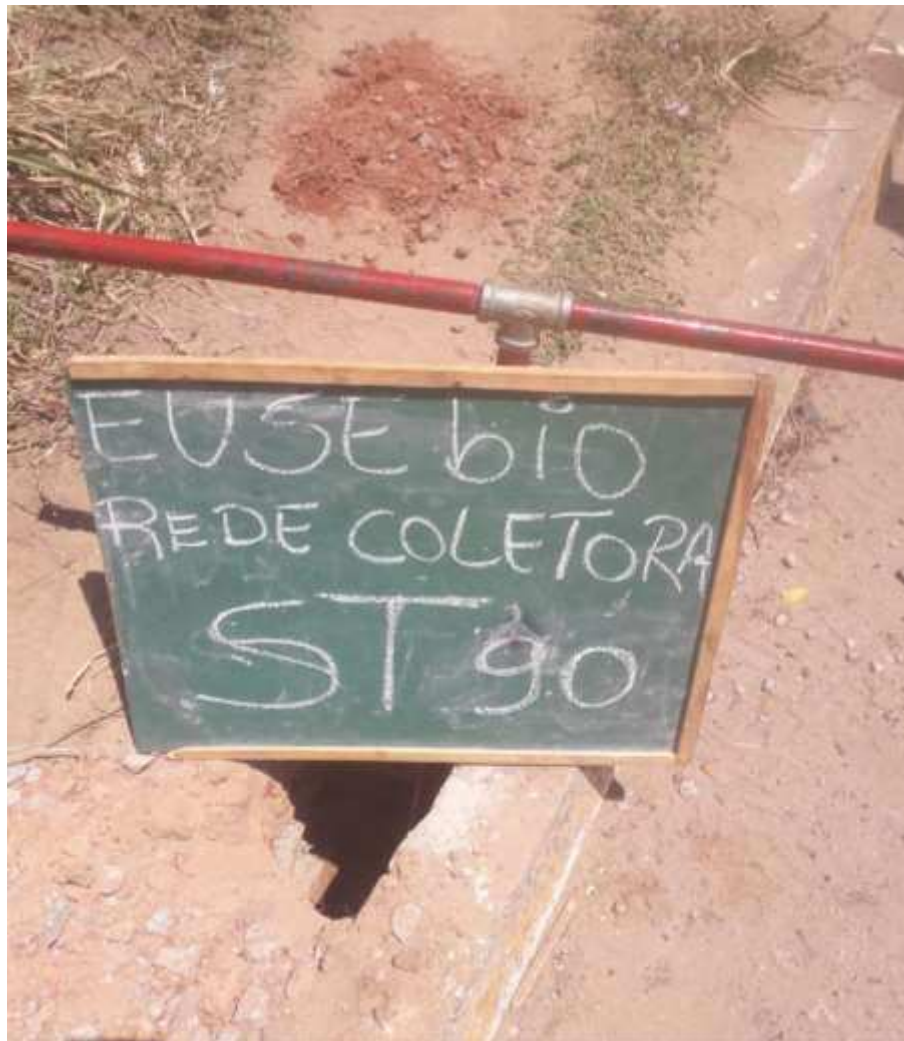 EUSEbio
REDE COLETORA
ST 90